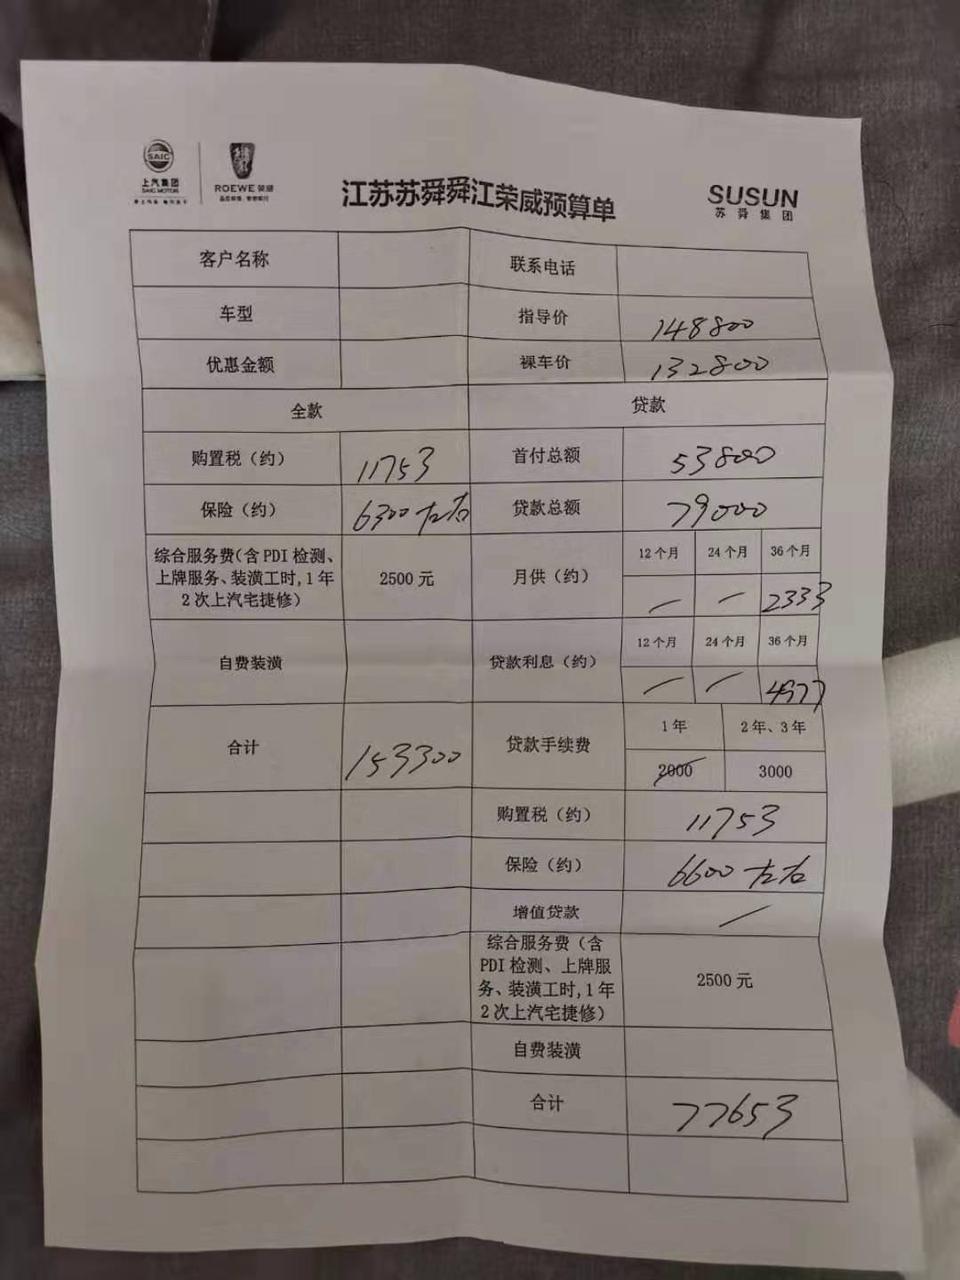 SAIC
上汽集团
SAIC MOTOR
ROEWE 荣威
江苏苏舜舜江荣威预算单
SUSUN
苏舜集团
客户名称
联系电话
车型
指导价
148800
优惠金额
裸车价
132800
全款
贷款
购置税（约）
11753
首付总额
53800
保险（约）
6300左右
贷款总额
79000
综合服务费(含PDI检测、
上牌服务、装潢工时,1年
2次上汽宅捷修）
2500元
月供（约）
12个月
24个月
36个月
2333
自费装潢
贷款利息（约）
12个月
24个月
36个月
4977
合计
153300
贷款手续费
1年
2年、3年
2000
3000
购置税（约）
11753
保险（约）
6600左右
增值贷款
综合服务费（含
PDI检测、上牌服
务、装潢工时,1年
2次上汽宅捷修）
2500元
自费装潢
合计
77653